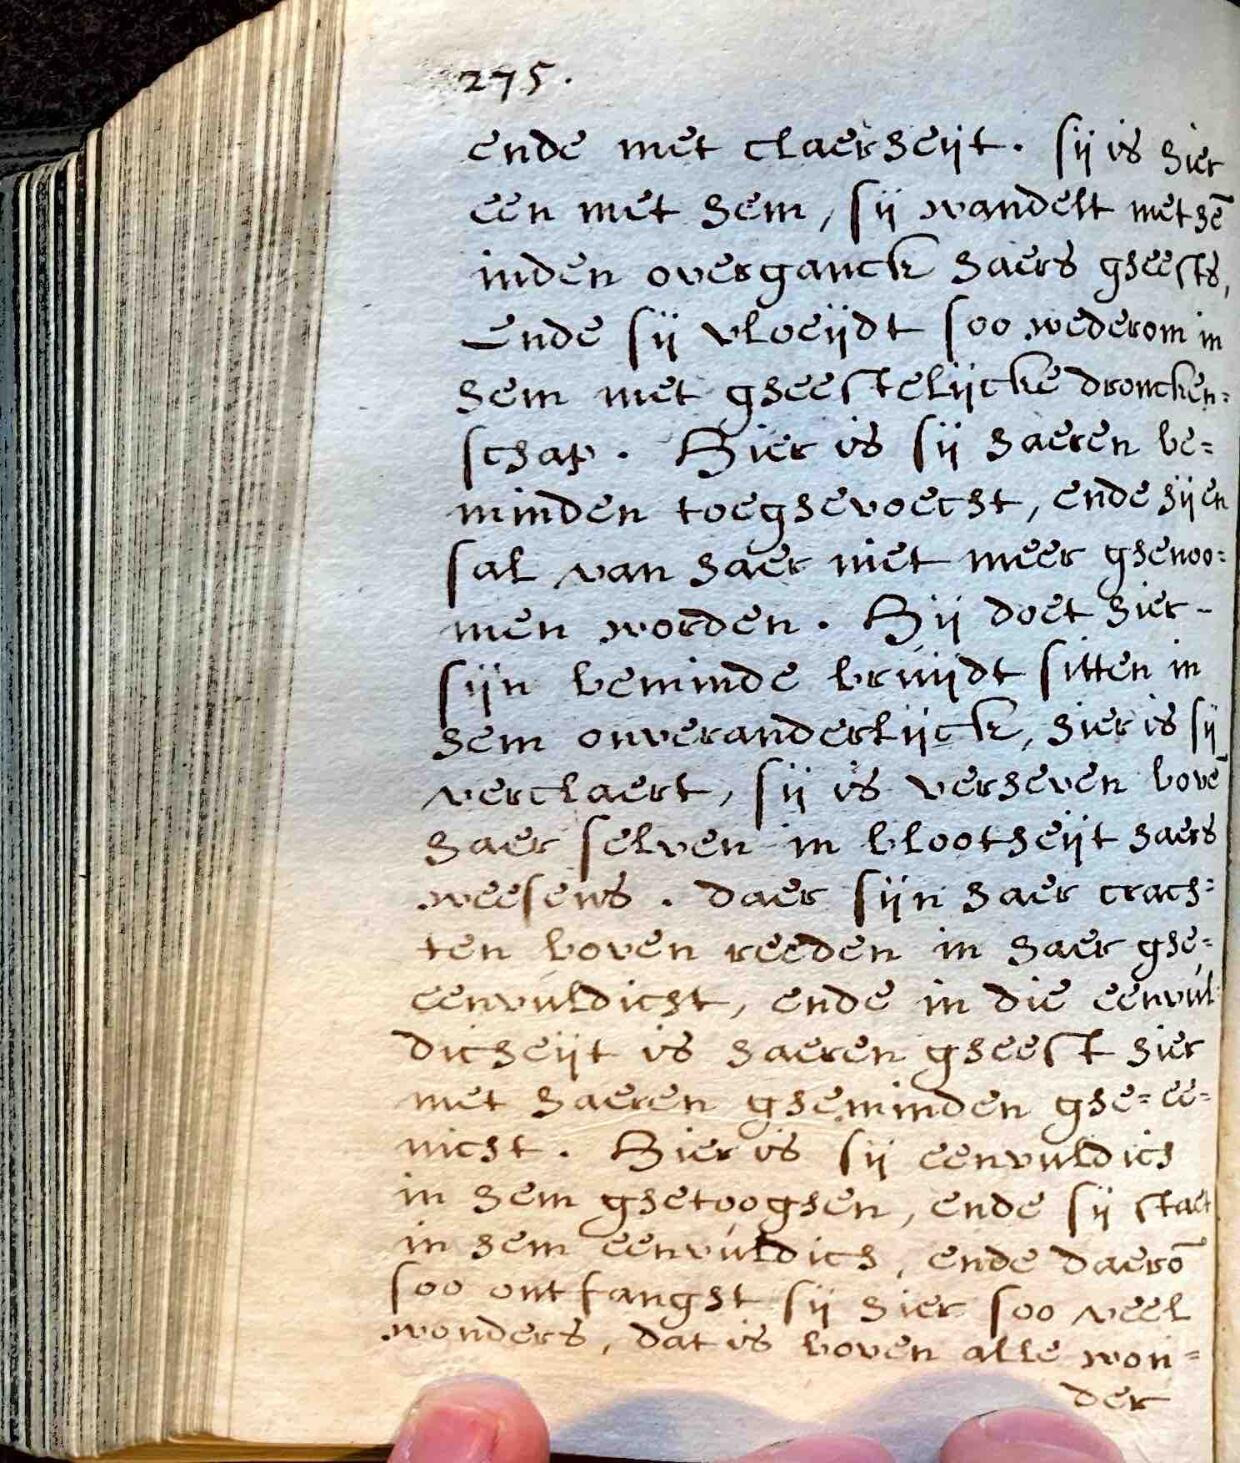 275.
ende met claerheijt. sij is hier
een met hem, sij wandelt met hē
inden overganck haers gheests,
Ende sij vloeijdt soo wederom in
hem met gheestelijcke droncken=
schap. Hier is sij haeren be=
minden toeghevoecht, ende sij en
sal van haer niet meer ghenoo=
men worden. Hij doet hier-
sijn beminde bruijdt sitten in
hem onveranderlijck, hier is sij
verclaert, sij is verheven bovē
haer selven in blootheijt haers
weesens. daer sijn haer crach=
ten boven reeden in haer ghe=
eenvuldicht, ende in die eenvul
dicheijt is haeren gheest hier
met haeren gheminden ghe=ee=
nicht. Hier is sij eenvuldich
in hem ghetooghen, ende sij staet
in hem eenvuldich, ende daerō
soo ontfanght sij hier soo veel
wonders, dat is boven alle won=
der